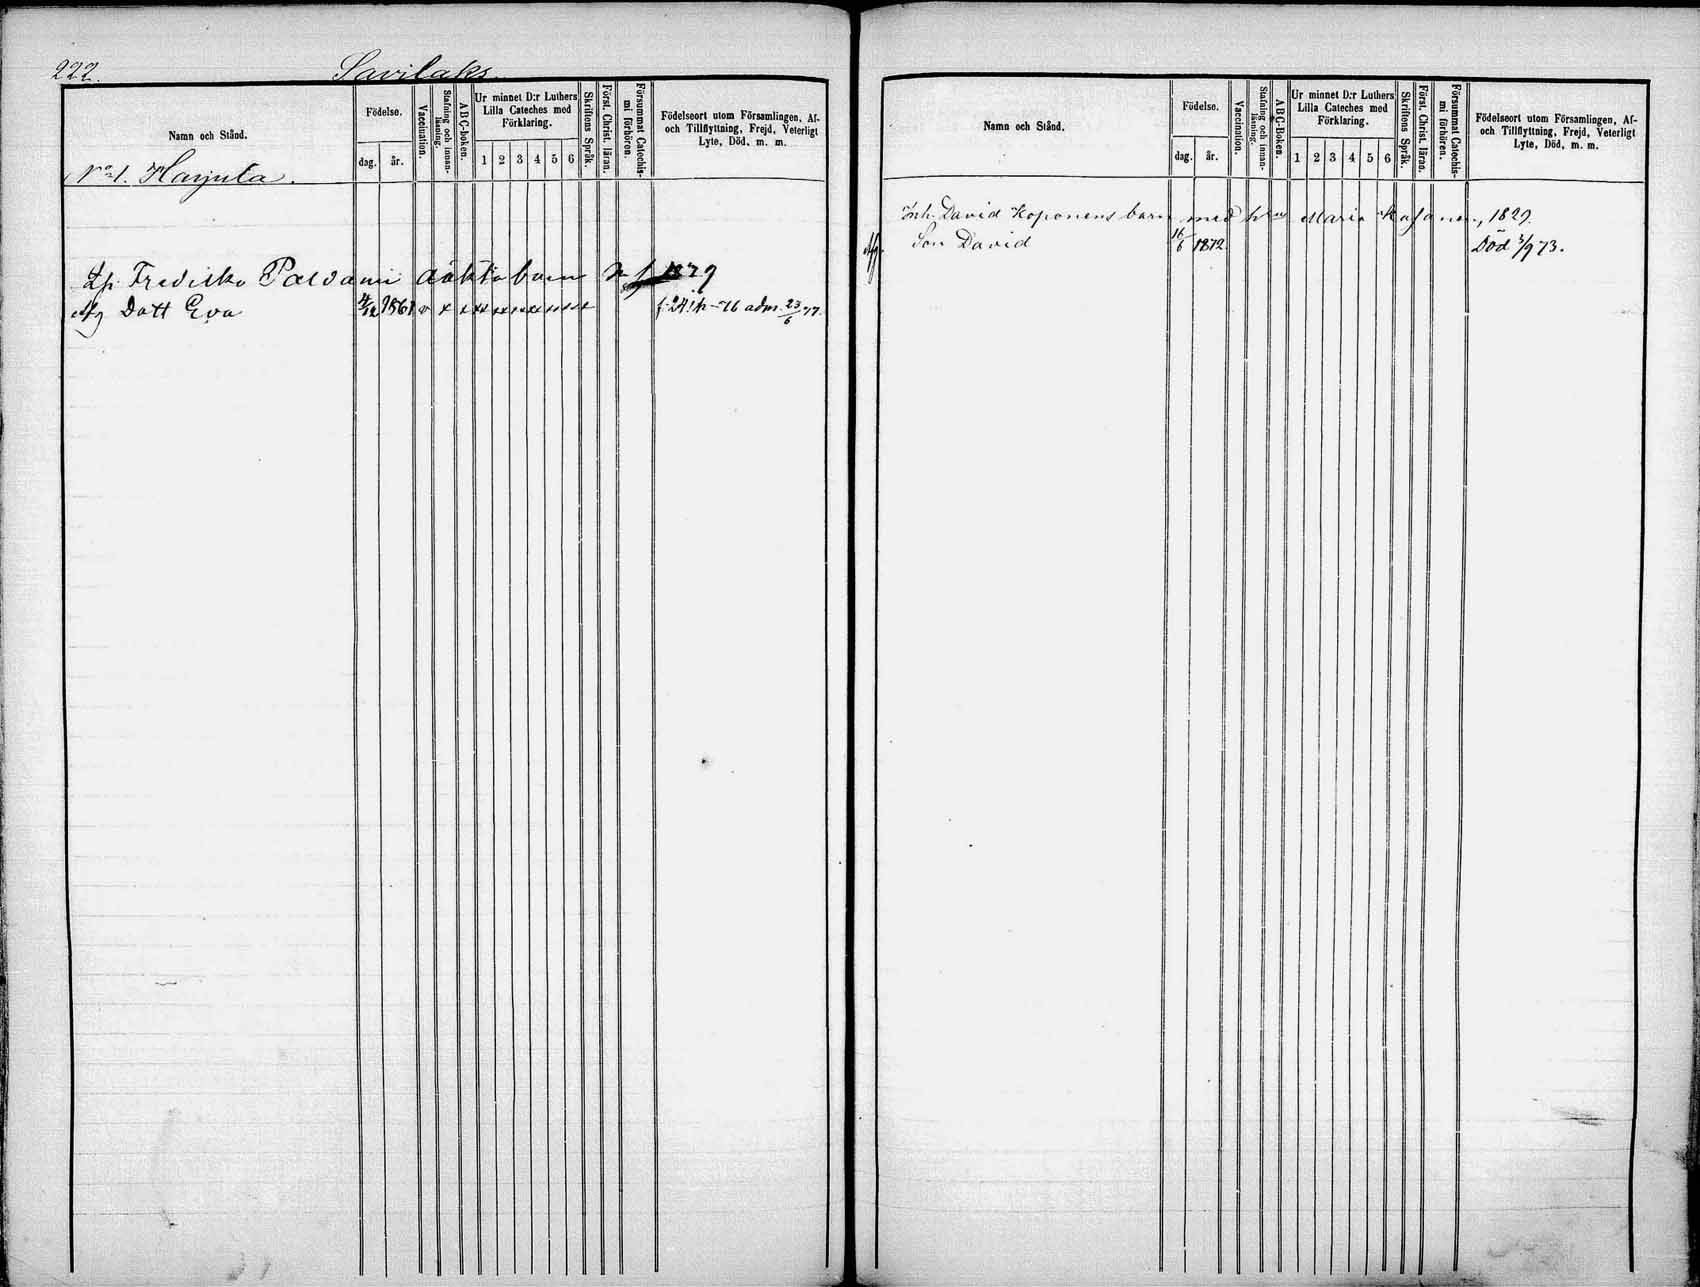 222.
Savilaks
Namn och Stånd.
Födelse.
dag.
år.
Vaccination.
Stafning och innan-
läsning.
ABC-boken.
Ur minnet D:r Luthers
Lilla Cateches med
Förklaring.
1 2 3 4 5 6
Skriftens Språk.
Först. Christ. läran.
Försummat Catechis-
mi förhören.
Födelseort utom Församlingen, Af-
och Tillflyttning, Frejd, Veterligt
Lyte, Död, m. m.
No 1. Harjula.
Lp. Fredikо Paldani äkta barn 1879
Dott Eva 4/12 1861 v x x xx xx xx xx f. 24 76 adm. 23/6 77.
Namn och Stånd.
Födelse.
dag.
år.
Vaccination.
Stafning och innan-
läsning.
ABC-Boken.
Ur minnet D:r Luthers
Lilla Cateches med
Förklaring.
1 2 3 4 5 6
Skriftens Språk.
Först. Christ. läran.
Försummat Catechis-
mi förhören.
Födelseort utom Församlingen, Af-
och Tillflyttning, Frejd, Veterligt
Lyte, Död, m. m.
Inh. David Koponens barn med Maria 1829.
Son David 16/6 1872 Död 3/9 73.